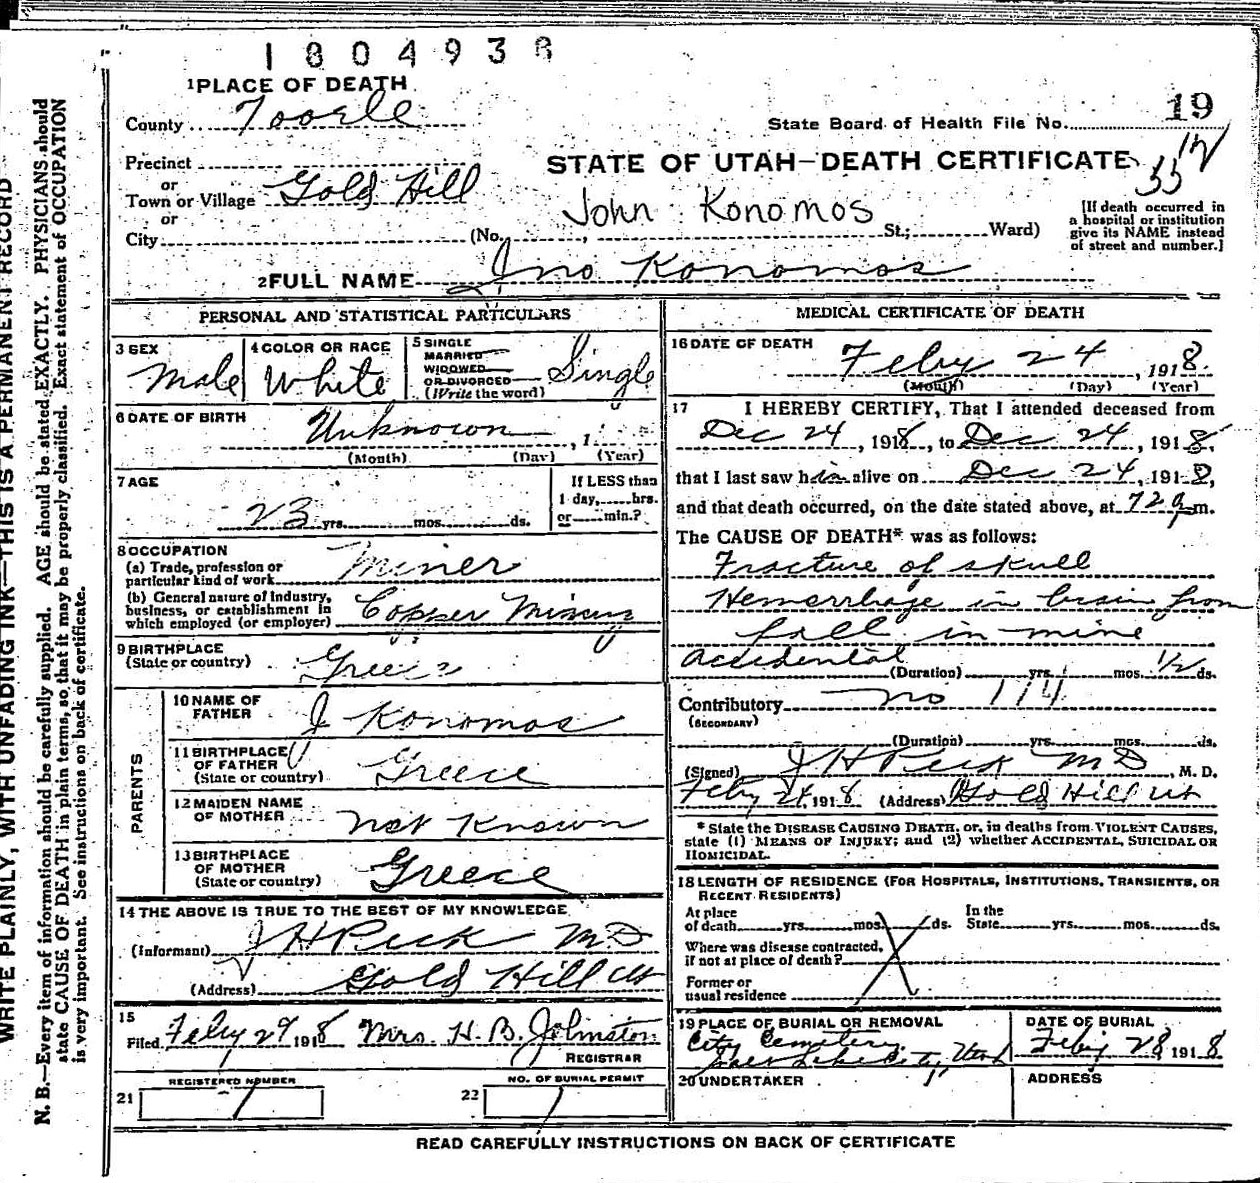 1804938
1 PLACE OF DEATH
County Tooele
19
State Board of Health File No.
Precinct
STATE OF UTAH—DEATH CERTIFICATE
or
Town or Village Gold Hill
or
John Konomos
City (No. St.; Ward)
[If death occurred in
a hospital or institution
give its NAME instead
of street and number.]
2 FULL NAME Jno Konomos
PERSONAL AND STATISTICAL PARTICULARS
3 SEX
Male
4 COLOR OR RACE
White
5 SINGLE
MARRIED
WIDOWED
OR DIVORCED
(Write the word)
Single
6 DATE OF BIRTH
Unknown , 1
(Month) (Day) (Year)
7 AGE
23 yrs. mos. ds.
If LESS than
1 day, hrs.
or min.?
8 OCCUPATION
(a) Trade, profession or
particular kind of work Miner
(b) General nature of industry,
business, or establishment in
which employed (or employer) Copper Mining
9 BIRTHPLACE
(State or country)
PARENTS
10 NAME OF
FATHER J Konomos
11 BIRTHPLACE
OF FATHER
(State or country) Greece
12 MAIDEN NAME
OF MOTHER Not Known
13 BIRTHPLACE
OF MOTHER
(State or country) Greece
14 THE ABOVE IS TRUE TO THE BEST OF MY KNOWLEDGE
(Informant) J H Peck M D
(Address) Gold Hill Ut
15
Filed Feby 29 1918 Mrs. H. B. Johnston
REGISTRAR
REGISTERED NUMBER
21 1
NO. OF BURIAL PERMIT
22 1
MEDICAL CERTIFICATE OF DEATH
16 DATE OF DEATH
Feby 24 , 1918.
(Month) (Day) (Year)
17 I HEREBY CERTIFY, That I attended deceased from
Dec 24 , 1918, to Dec 24 , 1918,
that I last saw him alive on Dec 24 , 1918,
and that death occurred, on the date stated above, at m.
The CAUSE OF DEATH* was as follows:
Fracture of skull
Hemorrhage in brain from
fall in mine
Accidental
(Duration) yrs. mos. 1/2 ds.
Contributory no 114
(SECONDARY)
(Duration) yrs. mos. ds.
(Signed) J H Peck M D , M. D.
Feby 24 1918 (Address) Gold Hill Ut
* State the DISEASE CAUSING DEATH, or, in deaths from VIOLENT CAUSES,
state (1) MEANS OF INJURY; and (2) whether ACCIDENTAL, SUICIDAL OR
HOMICIDAL.
18 LENGTH OF RESIDENCE (FOR HOSPITALS, INSTITUTIONS, TRANSIENTS, OR
RECENT RESIDENTS)
At place
of death yrs. mos. ds.
In the
State yrs. mos. ds.
Where was disease contracted,
if not at place of death?
Former or
usual residence
19 PLACE OF BURIAL OR REMOVAL
City Cemetery
Salt Lake City, Utah
DATE OF BURIAL
Feby 28 1918
20 UNDERTAKER
ADDRESS
READ CAREFULLY INSTRUCTIONS ON BACK OF CERTIFICATE
WRITE PLAINLY, WITH UNFADING INK—THIS IS A PERMANENT RECORD
N. B.—Every item of information should be carefully supplied. AGE should be stated EXACTLY. PHYSICIANS should
state CAUSE OF DEATH in plain terms, so that it may be properly classified. Exact statement of OCCUPATION
is very important. See instructions on back of certificate.